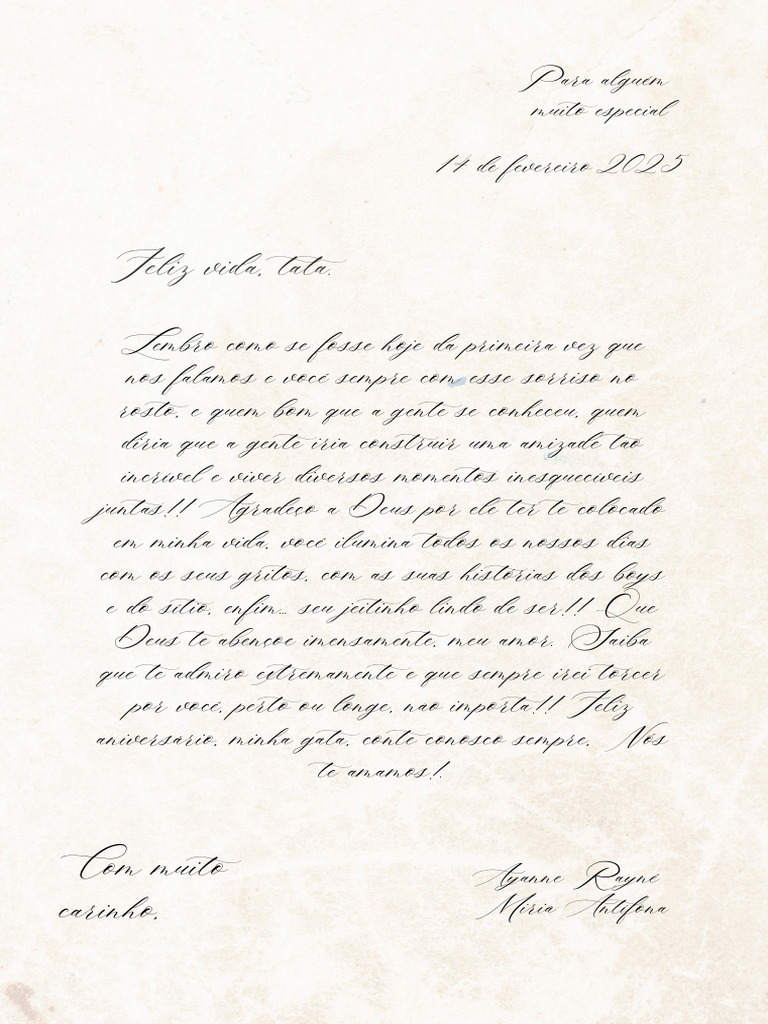 Para alguém
muito especial
14 de fevereiro 2025
Feliz vida, tata.
Lembro como se fosse hoje da primeira vez que
nos falamos e você sempre com esse sorriso no
rosto, e quem bom que a gente se conheceu, quem
diria que a gente iria construir uma amizade tão
incrível e viver diversos momentos inesquecíveis
juntas!! Agradeço a Deus por ele ter te colocado
em minha vida, você ilumina todos os nossos dias
com os seus gritos, com as suas histórias dos boys
e do sítio, enfim... seu jeitinho lindo de ser!! Que
Deus te abençoe imensamente, meu amor. Saiba
que te admiro extremamente e que sempre irei torcer
por você, perto ou longe, não importa!! Feliz
aniversário, minha gata, conte conosco sempre. Nós
te amamos!
Com muito
carinho,
Ayanne Rayné
Míria Antífona